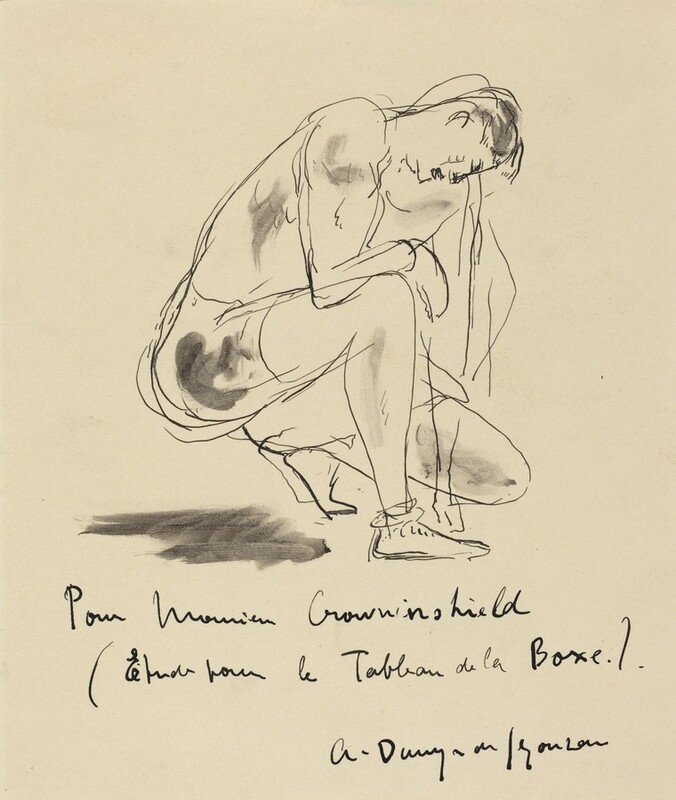 Pour Monsieur Crowninshield
(Étude pour le Tableau de la Boxe.).
A. Dunoyer de Segonzac